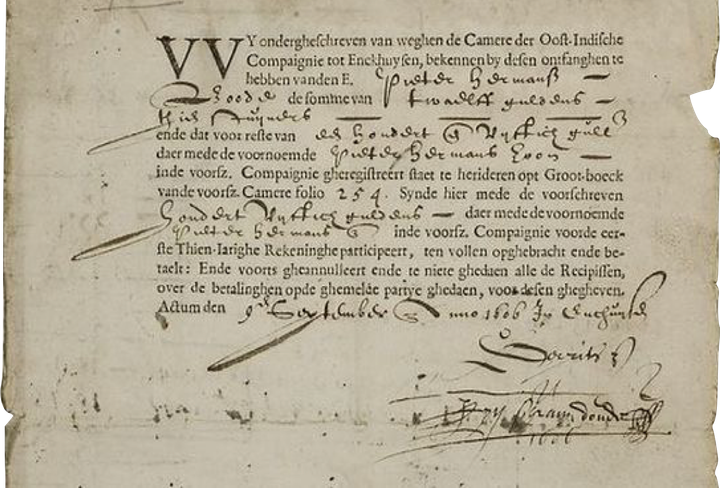 VVY ondergheschreven van weghen de Camere der Oost-Indische
Compaignie tot Enckhuysen, bekennen by desen ontfanghen te
hebben vanden E. Pieter Hermansz
Roode de somme van twaelff guldens
thien stuijvers
ende dat voor reste van hondert vyftich gull
daer mede de voornoemde Pieter Hermans
inde voorsz. Compaignie gheregistreert staet te herideren opt Groot-boeck
vande voorsz. Camere folio 254. Synde hier mede de voorschreven
hondert vyftich guldens daer mede de voornoemde
Pieter Hermans inde voorsz. Compaignie voorde eer-
ste Thien-Iarighe Rekeninghe participeert, ten vollen opghebracht ende be-
taelt: Ende voorts gheannulleert ende te niete ghedaen alle de Recipissen,
over de betalinghen opde ghemelde partye ghedaen, voor desen ghegheven.
Actum den 9 September Anno 1606 In Enchuysen
1606